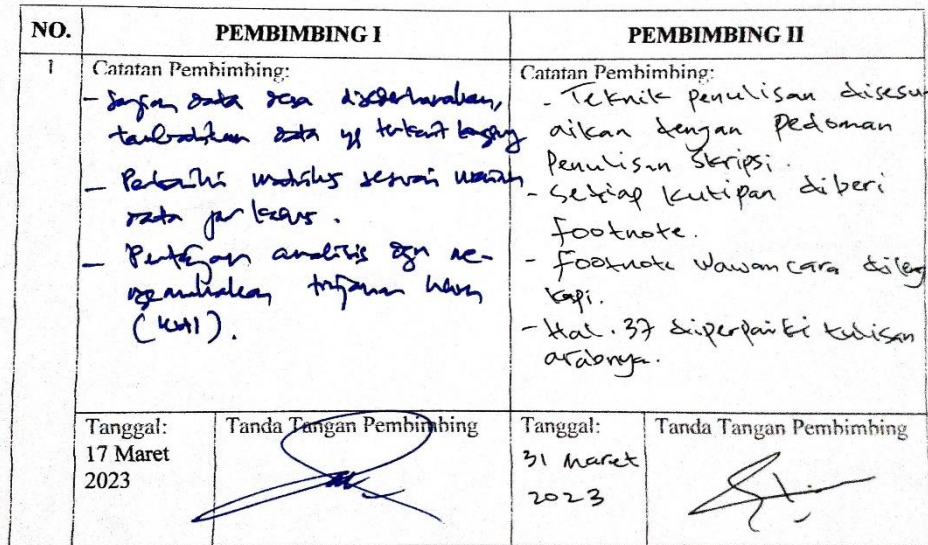 NO.
PEMBIMBING I
PEMBIMBING II
1
Catatan Pembimbing:
- Sajian data desa disederhanakan,
tambahkan data yg terkait langsung
- Perbaiki matriks sesuai
data per kasus.
- Pertajam analisis dgn me-
tinjauan hukum
(KHI).
Catatan Pembimbing:
- Teknik penulisan disesu
aikan dengan Pedoman
Penulisan Skripsi.
- Setiap kutipan diberi
footnote.
- Footnote wawancara dileng
kapi.
- Hal. 37 diperbaiki tulisan
arabnya.
Tanggal:
17 Maret
2023
Tanda Tangan Pembimbing
Tanggal:
31 Maret
2023
Tanda Tangan Pembimbing